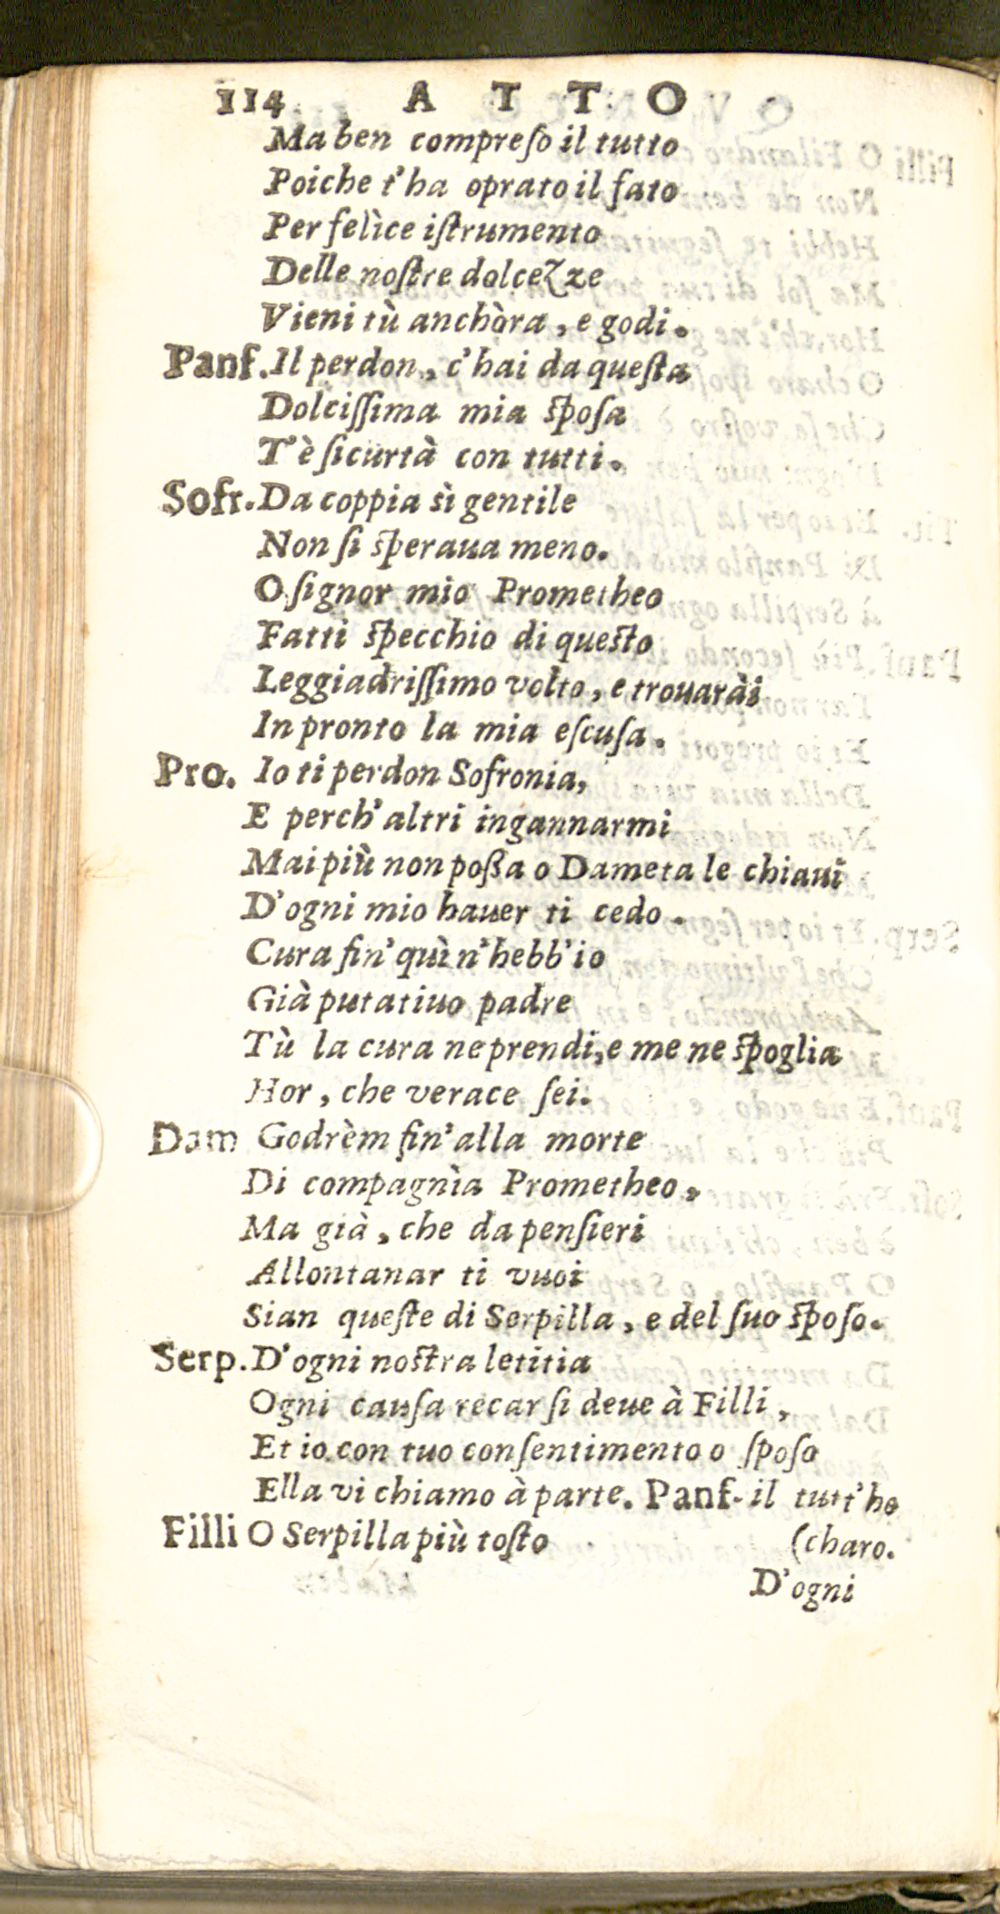 114 ATTO
Ma ben compreſo il tutto
Poiche t'ha oprato il fato
Per felice iſtrumento
Delle noſtre dolcezze
Vieni tù anchòra, e godi.
Panf. Il perdon, c'hai da queſta
Dolciſſima mia ſpoſa
T'è ſicurtà con tutti.
Sofr. Da coppia sì gentile
Non ſi ſperaua meno.
O ſignor mio Prometheo
Fatti ſpecchio di queſto
Leggiadriſſimo volto, e trouarài
In pronto la mia eſcuſa.
Pro. Io ti perdon Sofronia,
E perch' altri ingannarmi
Mai più non poßa o Dameta le chiaui
D'ogni mio hauer ti cedo.
Cura fin' quì n'hebb'io
Già putatiuo padre
Tù la cura ne prendi, e me ne ſpoglia
Hor, che verace ſei.
Dam Godrèm fin' alla morte
Di compagnìa Prometheo,
Ma già, che da penſieri
Allontanar ti vuoi
Sian queſte di Serpilla, e del ſuo ſpoſo.
Serp. D'ogni noſtra letitia
Ogni cauſa recar ſi deue à Filli,
Et io con tuo conſentimento o ſpoſo
Ella vi chiamo à parte. Panf. il tutt'ho
Filli O Serpilla più toſto (charo.
D'ogni